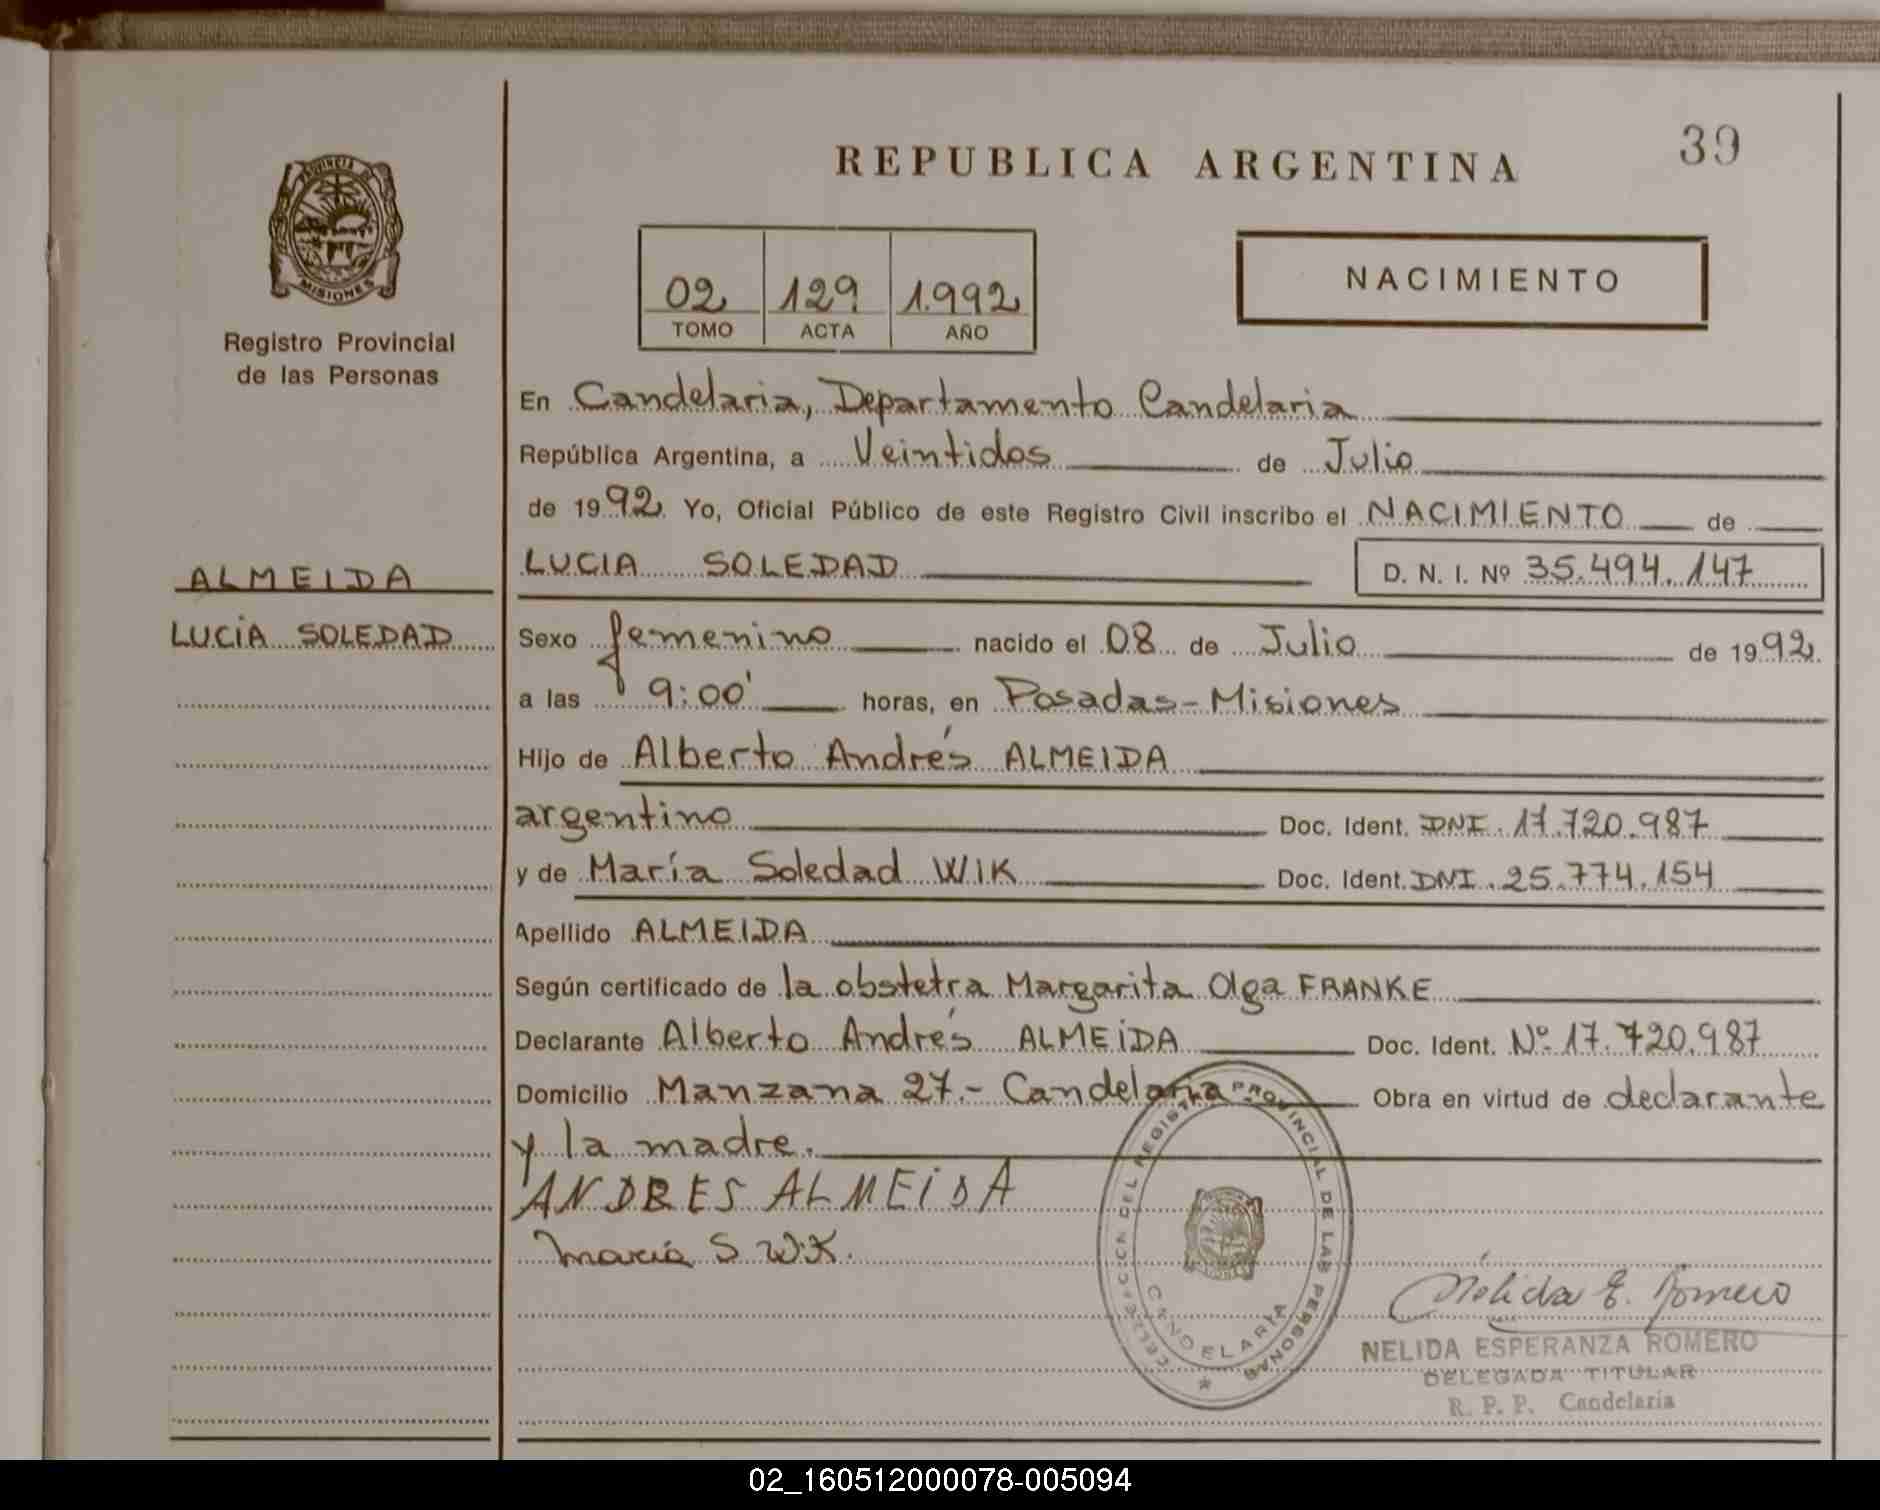 39
REPUBLICA ARGENTINA
PROVINCIA DE
MISIONES
Registro Provincial
de las Personas
02 129 1.992
TOMO ACTA AÑO
NACIMIENTO
En Candelaria, Departamento Candelaria
República Argentina, a Veintidos de Julio
de 1992. Yo, Oficial Público de este Registro Civil inscribo el NACIMIENTO de
ALMEIDA
LUCIA SOLEDAD D. N. I. Nº 35.494.147
LUCIA SOLEDAD
Sexo femenino nacido el 08 de Julio de 1992.
a las 9:00' horas, en Posadas-Misiones
Hijo de Alberto Andrés ALMEIDA
argentino Doc. Ident. DNI. 17.720.987
y de María Soledad WIK Doc. Ident. DNI. 25.774.154
Apellido ALMEIDA
Según certificado de la obstetra Margarita Olga FRANKE
Declarante Alberto Andrés ALMEIDA Doc. Ident. Nº 17.720.987
Domicilio Manzana 27.- Candelaria Obra en virtud de declarante
y la madre.
ANDRES ALMEIDA
María S Wik.
DEL REGISTRO PROVINCIAL DE LAS PERSONAS
CANDELARIA
Nélida E. Romero
NELIDA ESPERANZA ROMERO
DELEGADA TITULAR
R. P. P. Candelaria
02_160512000078-005094